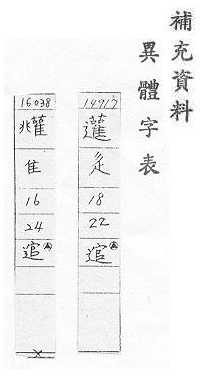 補充資料
異體字表
14917
辵
18
22
逭
16038
隹
16
24
逭